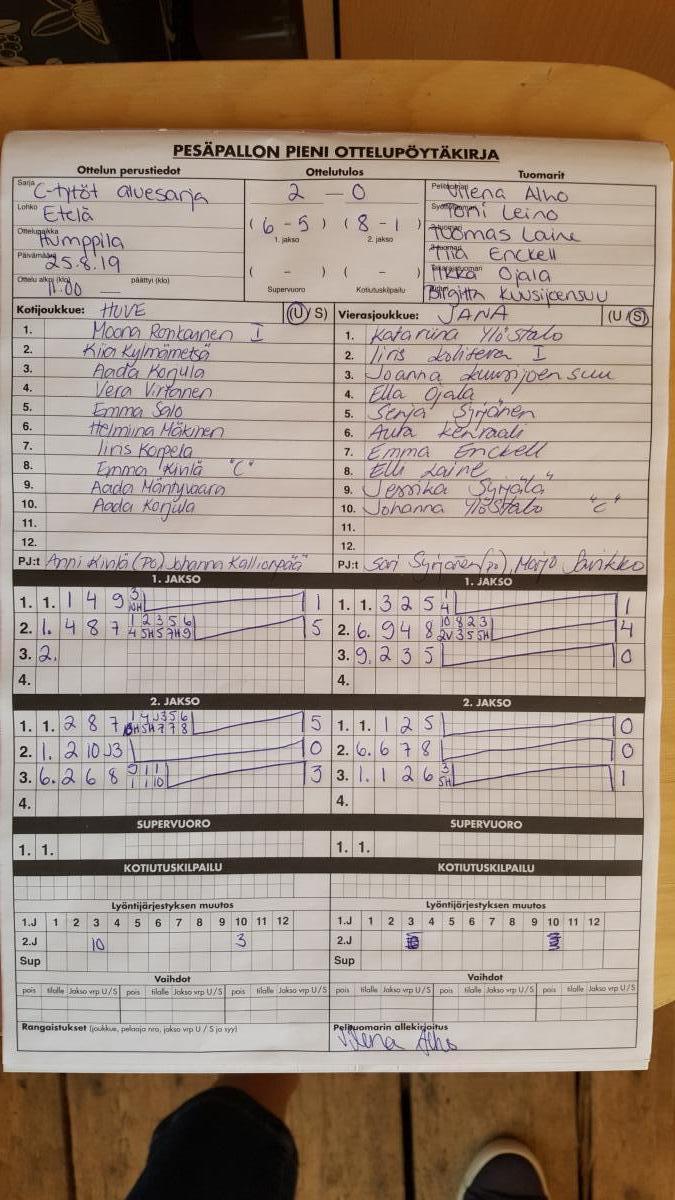 PESÄPALLON PIENI OTTELUPÖYTÄKIRJA
Ottelun perustiedot
Sarja C-tytöt aluesarja
Lohko Etelä
Ottelupaikka Humppila
Päivämäärä 25.8.19
Ottelu alkoi (klo) 11.00 päättyi (klo) —
Ottelutulos
2 — 0
( 6 - 5 ) ( 8 - 1 )
1. jakso 2. jakso
( - ) ( - )
Supervuoro Kotiutuskilpailu
Tuomarit
Vilena Alho
Toni Leino
Tuomas Laine
Tiia Enckell
Ilkka Ojala
Birgitta Kuusijoensuu
Kotijoukkue: HUVE (U/ S)
1. Moona Ronkainen I
2. Kiia Kylmämetsä
3. Aada Konjula
4. Vera Virtanen
5. Emma Salo
6. Helmiina Mäkinen
7. Iiris Karpela
8. Emma Kinlä "C"
9. Aada Mäntyvaara
10. Aada Konjula
11.
12.
PJ:t Anni Kinlä (PO) Johanna Kallionpää
Vierasjoukkue: JANA (U / S)
1. Katariina Ylöstalo
2. Iiris I
3. Joanna Kuusijoensuu
4. Ella Ojala
5. Senja Syrjänen
6. Aura Kenraali
7. Emma Enckell
8. Elli Laine
9. Jessika Syrjälä
10. Johanna Ylöstalo "C"
11.
12.
PJ:t Sari Syrjänen (po), Marjo
1. JAKSO
1. 1. 1 4 9 3 1
10H
2. 1. 4 8 7 1 2 3 5 6 5
4 5H 5 7H 9
3. 2.
4.
1. JAKSO
1. 1. 3 2 5 1 1
4
2. 6. 9 4 8 10 8 2 3 4
2V 3 5 5H
3. 9. 2 3 5 0
4.
2. JAKSO
1. 1. 2 8 7 1 4 J3 5 6 5
5H 7 7 8
2. 1. 2 10 J3 0
3. 6. 2 6 8 1 1 3
1 1 10
4.
2. JAKSO
1. 1. 1 2 5 0
2. 6. 6 7 8 0
3. 1. 1 2 6 3 1
5H
4.
SUPERVUORO
1. 1.
SUPERVUORO
1. 1.
KOTIUTUSKILPAILU
KOTIUTUSKILPAILU
Lyöntijärjestyksen muutos
1.J 1 2 3 4 5 6 7 8 9 10 11 12
2.J 10 3
Sup
Lyöntijärjestyksen muutos
1.J 1 2 3 4 5 6 7 8 9 10 11 12
2.J
Sup
Vaihdot
pois tilalle Jakso vrp U / S pois tilalle Jakso vrp U / S pois tilalle Jakso vrp U / S
Vaihdot
pois tilalle Jakso vrp U / S pois tilalle Jakso vrp U / S pois tilalle Jakso vrp U / S
Rangaistukset (joukkue, pelaaja nro, jakso vrp U / S ja syy)
Pelituomarin allekirjoitus
Vilena Alho